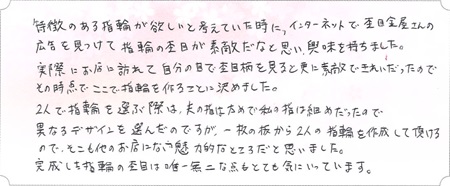 特徴のある指輪が欲しいと考えていた時に、インターネットで杢目金屋さんの
広告を見つけて指輪の杢目が素敵だなと思い、興味を持ちました。
実際にお店に訪れて自分の目で杢目柄を見ると更に素敵できれいだったので
その時点でここで指輪を作ることに決めました。
2人で指輪を選ぶ際は、夫の指は太めで私の指は細めだったので
異なるデザインを選んだのですが、一枚の板から2人の指輪を作成して頂ける
ので、そこも他のお店にない魅力的なところだと思いました。
完成した指輪の杢目は唯一無二な点もとても気にいっています。